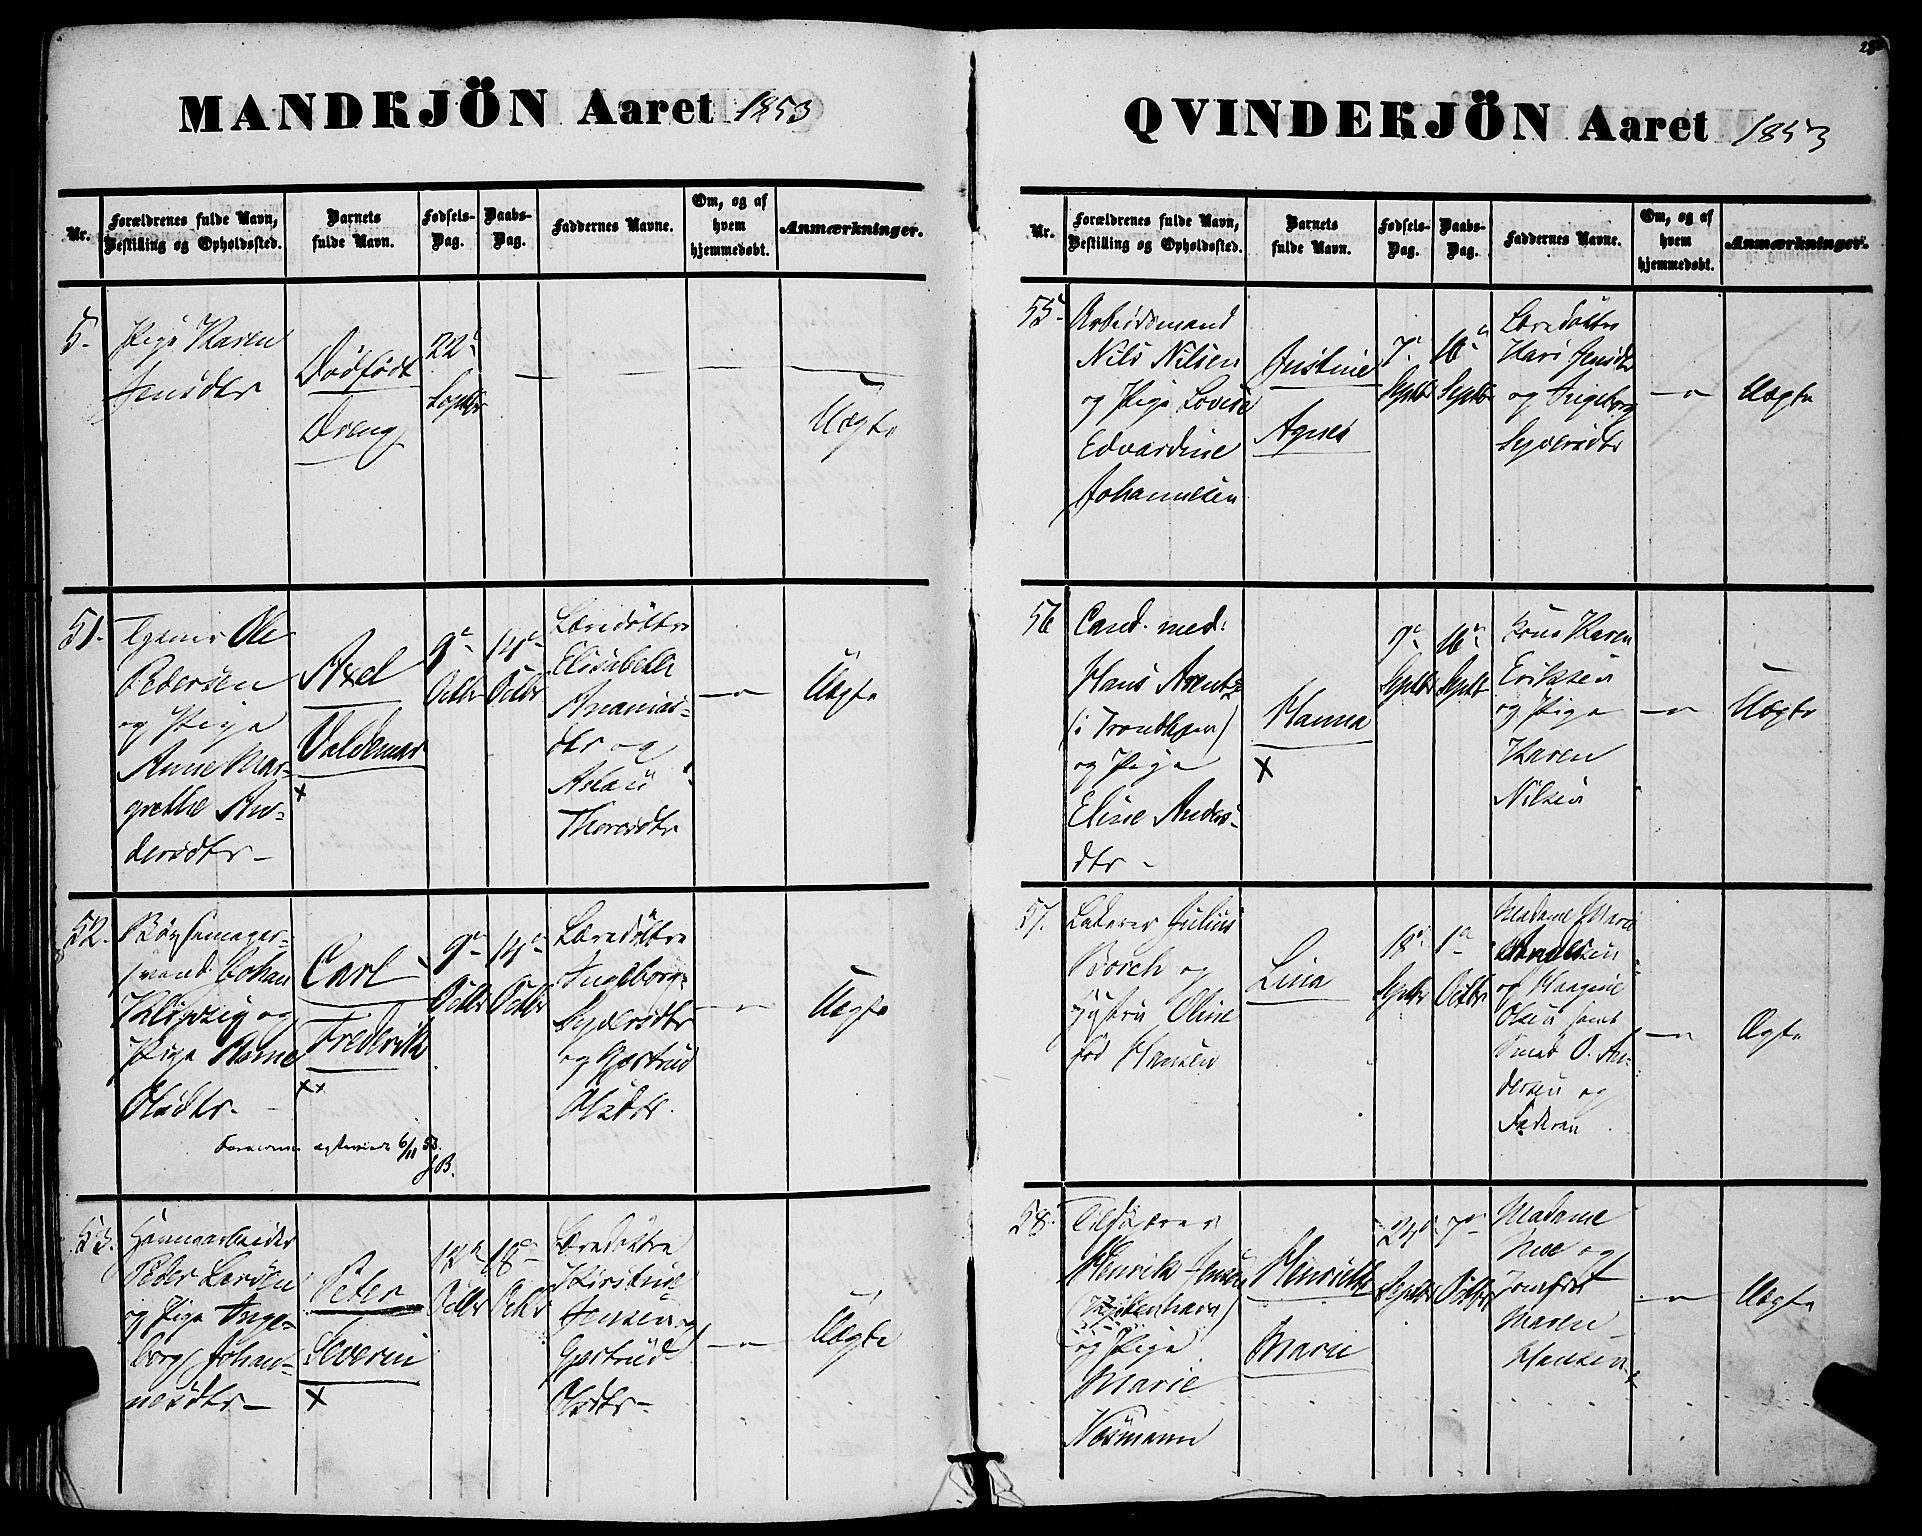 MANDKJÖN Aaret 1853
Nr.
Forældrenes fulde Navn, Bestilling og Opholdssted.
Barnets fulde Navn.
Fødsels-Dag.
Daabs-Dag.
Faddernes Navne.
Om, og af hvem hjemmedøbt.
Anmærkninger.
5.
Pige Karen
Jensdtr
Dødfødt
Dreng
22de
Septbr
Uægte
51.
Ole
Pedersen
og Pige
Anne Mar-
grethe An-
dersdtr
Axel
Valdemar
x
9de
Octbr
14de
Octbr
Læredöttre
Elisabeth
Ananias-
dtr og
Thoresdtr
Uægte
52.
Johan
Klipzig og
Pige
Olsdtr.
Carl
Fredrik
xx
9de
Octbr
14de
Octbr
Læredöttre
Ingeborg
Syversdtr
og Gjertrud
Olsdtr.
Uægte
6/11 53.
JB.
53.
Peder Larsen
og Pige Inge-
borg Johan-
nesdtr
Peter
Severin
x
12te
Octbr
18de
Octbr
Læredöttre
Kirstine
Jensen og
Gjertrud
Olsdtr
Uægte
QVINDEKJÖN Aaret 1853
Nr.
Forældrenes fulde Navn, Bestilling og Opholdssted.
Barnets fulde Navn.
Fødsels-Dag.
Daabs-Dag.
Faddernes Navne.
Om, og af hvem hjemmedøbt.
Anmærkninger.
55.
Arbeidsmand
Nils Nilsen
og Pige Lovise
Edvardine
Johannesen
Justine
Agnes
7de
Septbr
16de
Septbr
Læredöttre
Kari Jensdtr
og Ingeborg
Syversdtr
Uægte
56
Cand. med.
Hans Arentz
(i Trondhjem)
og Pige
Eline Anders-
dtr
Hanna
x
9de
Septbr
16de
Septbr
Kone Karen
Eriksen
og Pige
Karen
Nilsen
Uægte
57.
Julius
Borch og
Hystru Oline
fød Hansen
Lina
18de
Septbr
1ste
Octbr
Madame Marie
og Haagine
Olsen samt
O. An-
dersen og
Faderen
Ægte
58.
Henrik Jensen
(Kjöbenhavn)
og Pige
Marie
Næsmann
Henriette
Marie
24de
Septbr
7de
Octbr
Madame
og
Jomfru
Maren
Hansen
Uægte